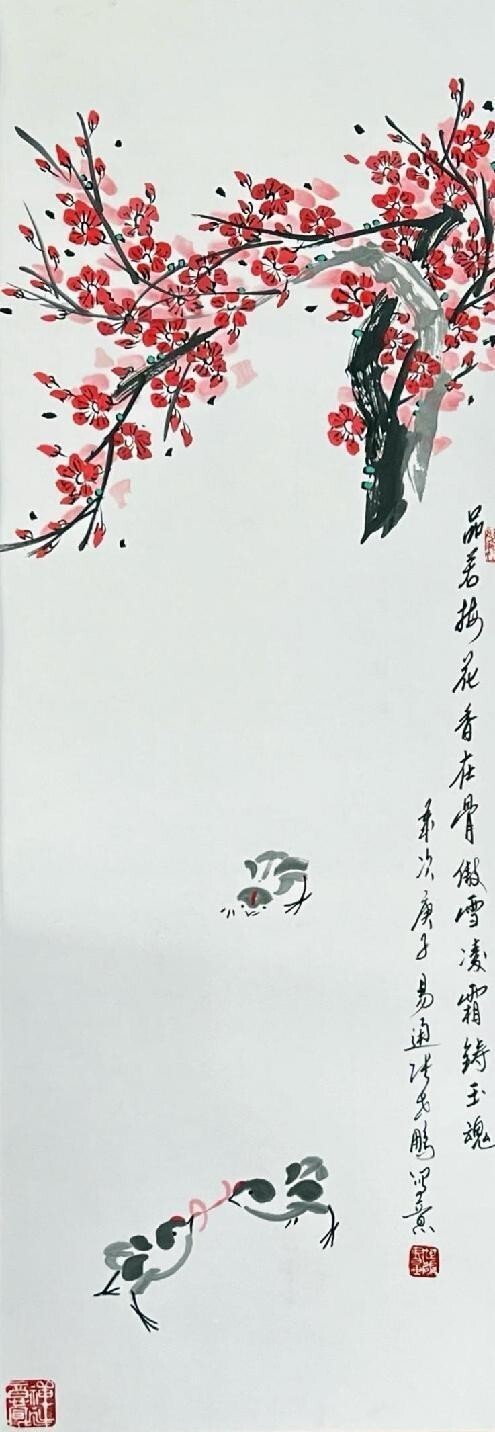 品若梅花香在骨傲雪凌霜铸玉魂
岁次庚子易通张世鹏写意